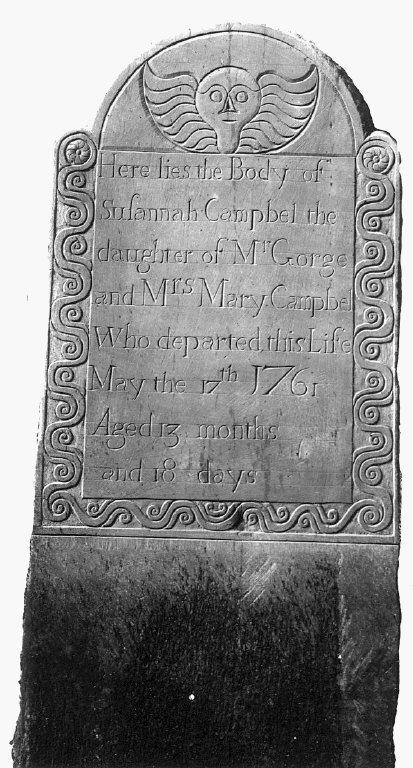 Here lies the Body of
Suſannah Campbel the
daughter of Mr Gorge
and Mrs Mary Campbel
Who departed this Life
May the 17th 1761
Aged 13 months
and 18 days